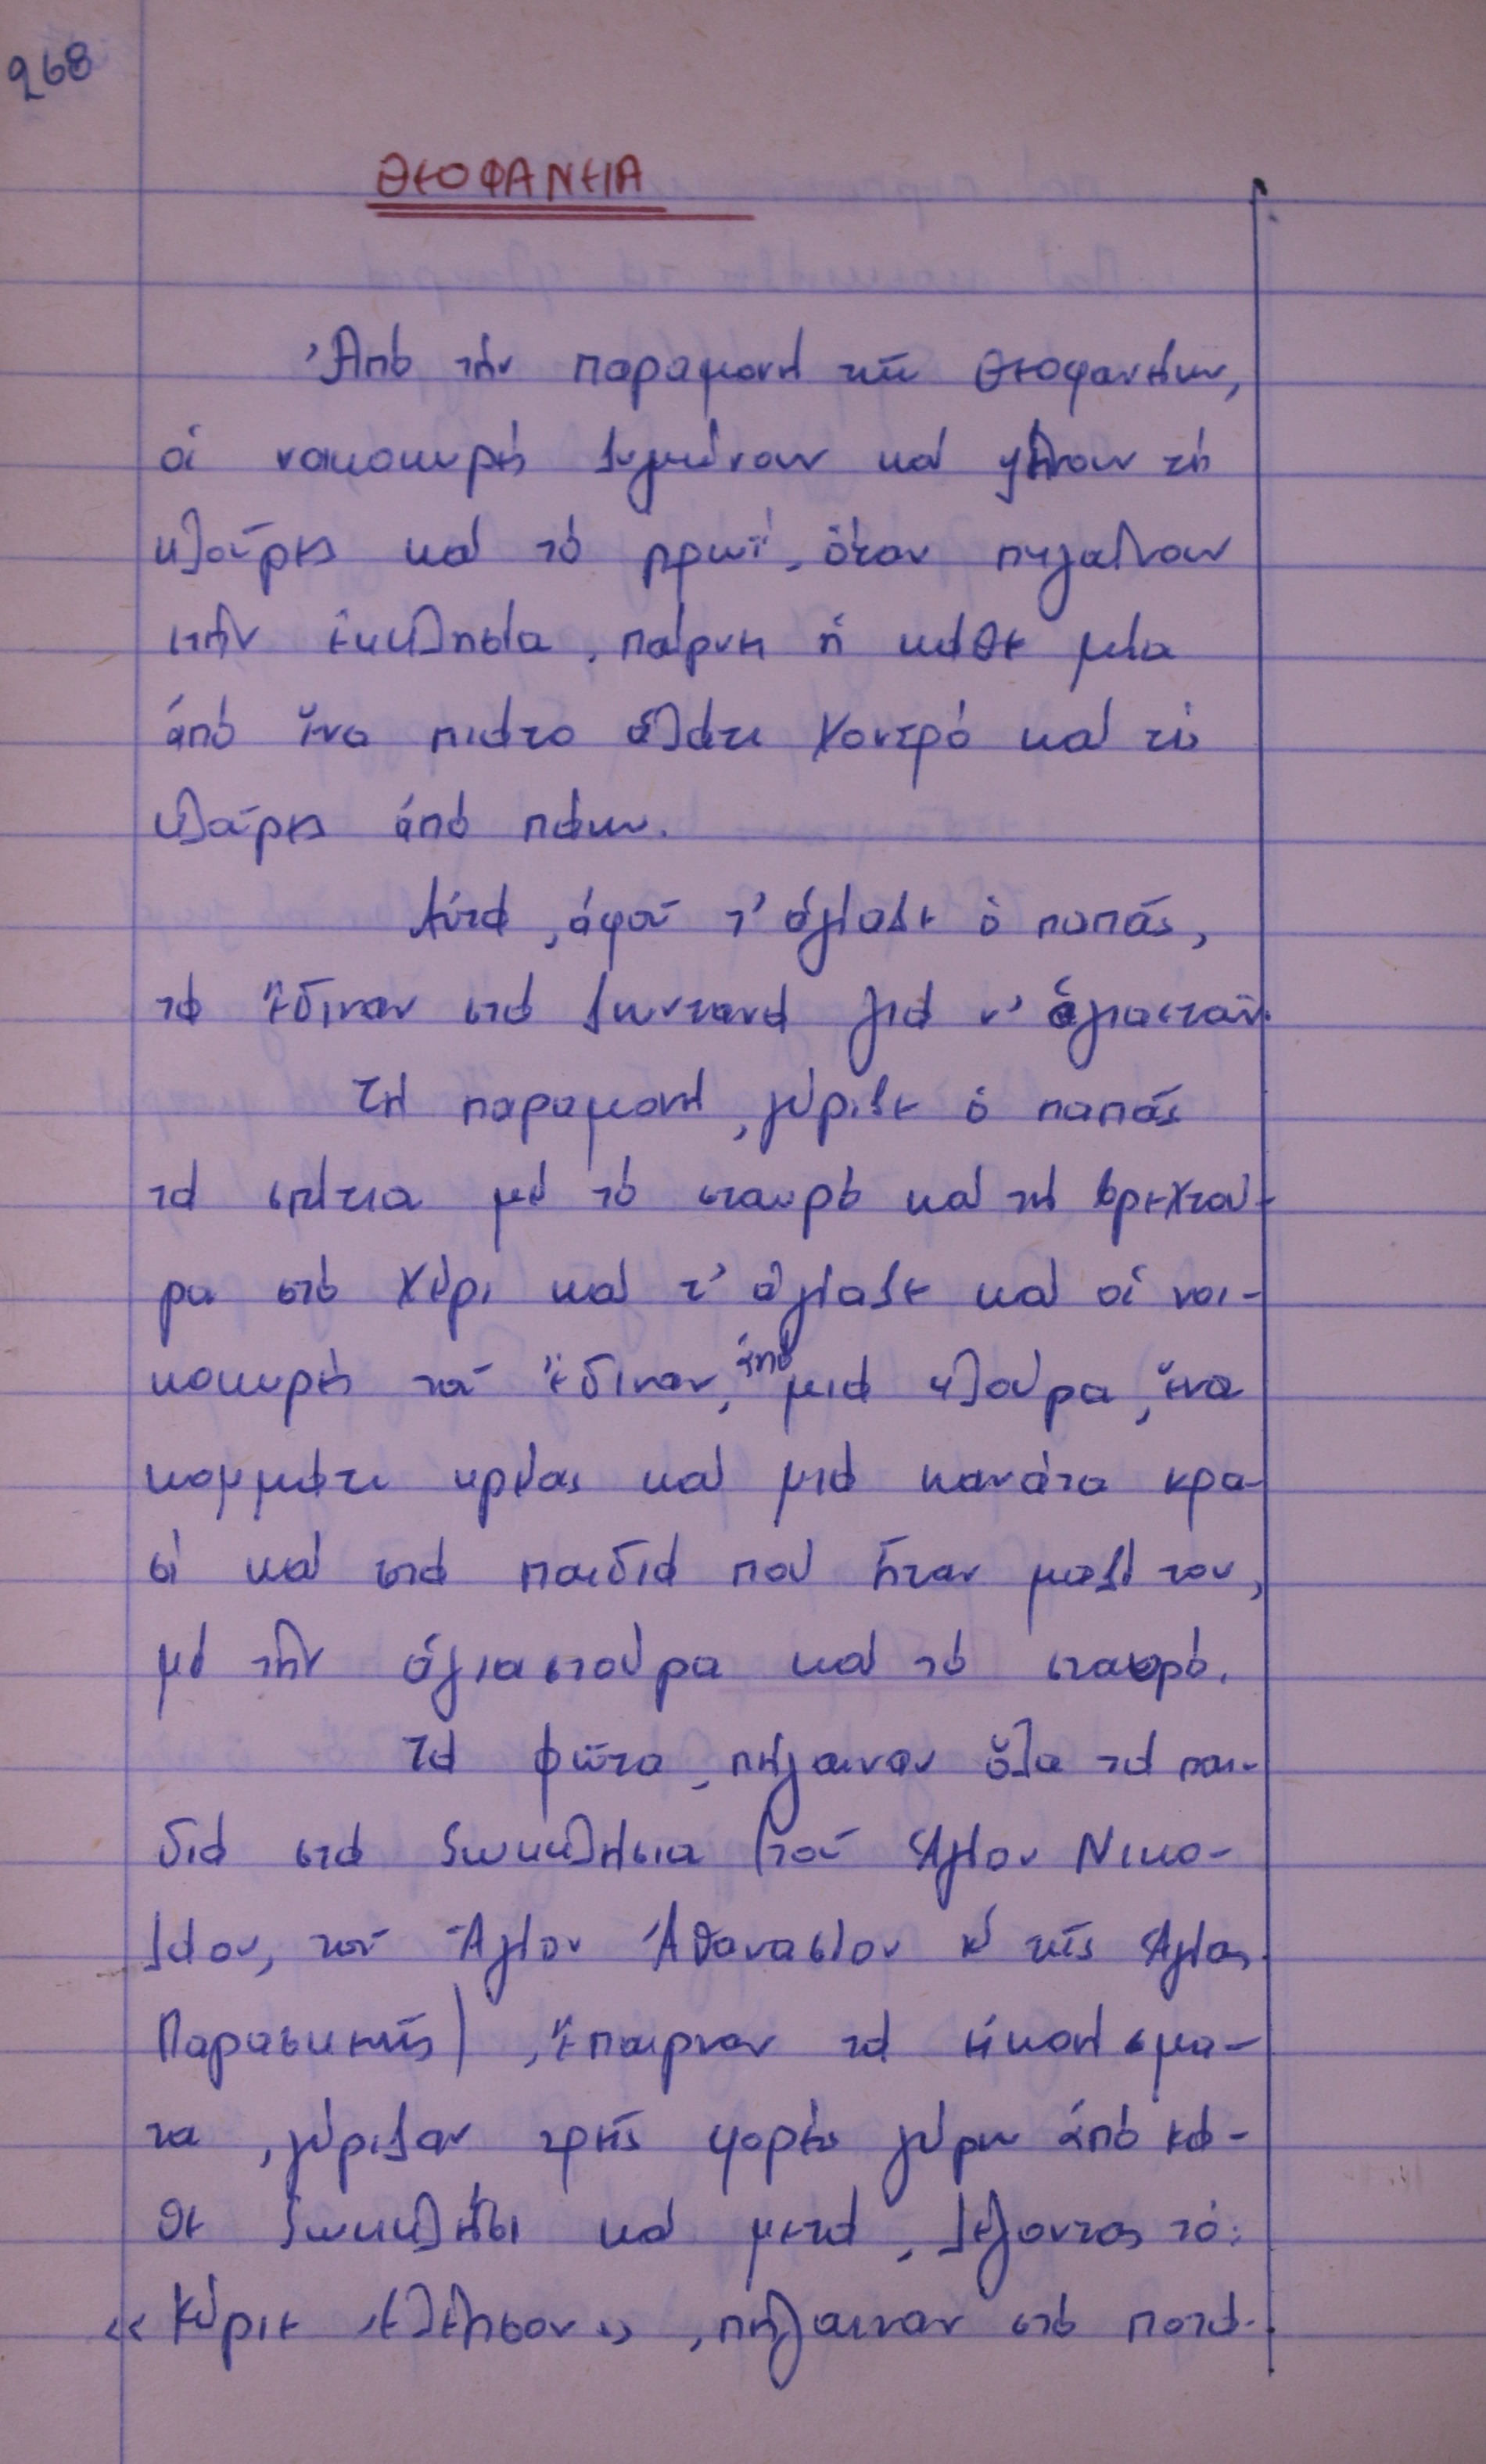 268
ΘΕΟΦΑΝΕΙΑ
Ἀπό τήν παραμονή τῶν Θεοφανείων,
οἱ νοικοκυρές ζυμώνουν καί ψήνουν τίς
κλοῦρες καί τό πρωΐ, ὅταν πηγαίνουν
στήν ἐκκλησία, παίρνει ἡ κάθε μία
ἀπό ἕνα πιάτο ἁλάτι χοντρό καί τίς
κλοῦρες ἀπό πάνω.
Αὐτά, ἀφοῦ τ' ἁγίαζε ὁ παπάς,
τά ἔδιναν στά ζωντανά γιά ν' ἁγιαστοῦν.
Τή παραμονή, γύριζε ὁ παπάς
τά σπίτια μέ τό σταυρό καί τή βρεχτού-
ρα στό χέρι καί τ' ἁγίαζε καί οἱ νοι-
κοκυρές τοῦ ἔδιναν, ἀπό μιά κλούρα, ἕνα
κομμάτι κρέας καί μιά κανάτα κρα-
σί καί στά παιδιά πού ἦταν μαζί του,
μέ τήν ἁγιαστούρα καί τό σταυρό.
Τά φῶτα, πήγαιναν ὅλα τά παι-
διά στά ξωκκλήσια (τοῦ Ἁγίου Νικο-
λάου, τοῦ Ἁγίου Ἀθανασίου κ' τῆς Ἁγίας
Παρασκευῆς), ἔπαιρναν τά εἰκονίσμα-
τα, γύριζαν τρεῖς φορές γύρω ἀπό κά-
θε ξωκκλήσι καί μετά, λέγοντας τό:
«Κύριε ἐλέησον», πήγαιναν στό ποτά-